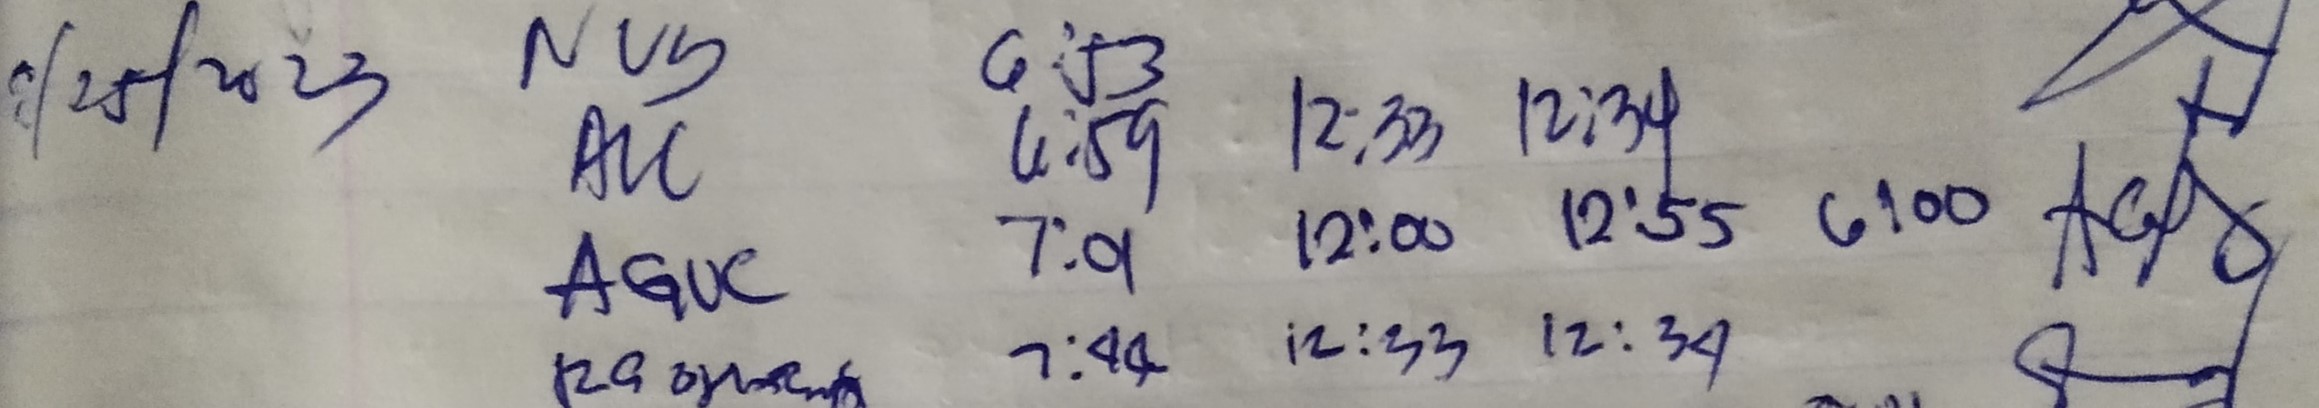 /25/2023 NVB 6:53
AUC 6:59 12:33 12:34
AGUC 7:01 12:00 12:55 6:00
7:44 12:33 12:34